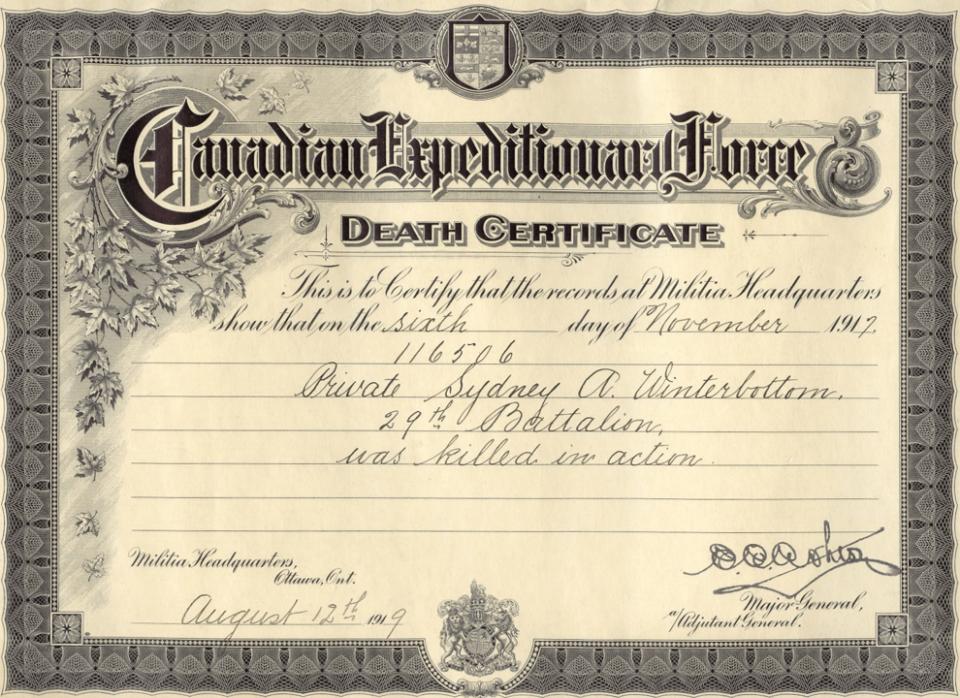 Canadian Expeditionary Force
DEATH CERTIFICATE
This is to Certify that the records at Militia Headquarters
show that on the sixth day of November 1917.
116506
Private Sydney A. Winterbottom,
29th Battalion,
was killed in action.
Militia Headquarters,
Ottawa, Ont.
August 12th 1919
Major General,
a/Adjutant General.